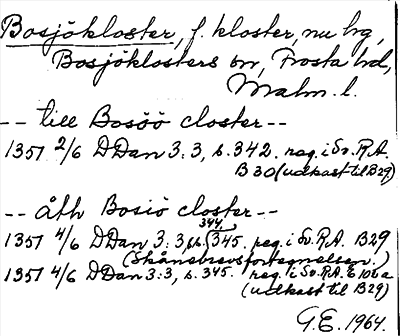 Bosjökloster, f. kloster, nu hg,
Bosjöklosters sn, Frosta hd,
Malm. l.
-- till Bosöö closter --
1351 2/6 DDan 3:3, s. 342. reg. i Sv. R.A.
B 30 (udkast til B29)
-- åth Bosiö closter --
344,
1351 4/6 DDan 3:3, s. 345. reg. i Sv. R.A. B29
(Skånebrevsfortegnelsen.)
1351 4/6 DDan 3:3, s. 345. reg. i Sv. R.A. E 106a
(udkast til B29)
G.E. 1964.